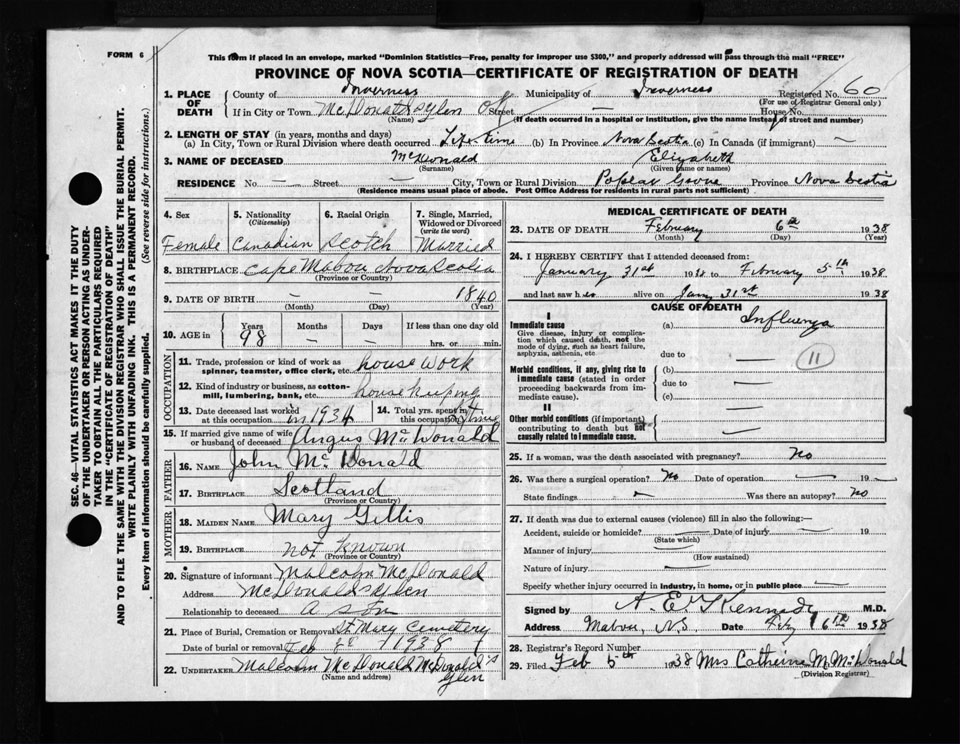 FORM 6
This form if placed in an envelope, marked "Dominion Statistics—Free, penalty for improper use $300," and properly addressed will pass through the mail "FREE"
PROVINCE OF NOVA SCOTIA—CERTIFICATE OF REGISTRATION OF DEATH
1. PLACE OF DEATH
County of Inverness Municipality of Inverness Registered No. 60
(For use of Registrar General only)
If in City or Town McDonald's Glen Street — House No.
(Name) (If death occurred in a hospital or institution, give the name instead of street and number)
2. LENGTH OF STAY (in years, months and days)
(a) In City, Town or Rural Division where death occurred Life time (b) In Province Nova Scotia (c) In Canada (if immigrant) —
3. NAME OF DECEASED McDonald Elizabeth
(Surname) (Given name or names)
RESIDENCE No — Street — City, Town or Rural Division Poplar Grove Province Nova Scotia
(Residence means usual place of abode. Post Office Address for residents in rural parts not sufficient)
4. Sex
Female
5. Nationality
(Citizenship)
Canadian
6. Racial Origin
Scotch
7. Single, Married, Widowed or Divorced
(write the word)
Married
8. BIRTHPLACE Cape Mabou Nova Scotia
(Province or Country)
9. DATE OF BIRTH — — 1840
(Month) (Day) (Year)
10. AGE in
Years Months Days If less than one day old
98 — — hrs. or min.
OCCUPATION
11. Trade, profession or kind of work as spinner, teamster, office clerk, etc. house work
12. Kind of industry or business, as cotton-mill, lumbering, bank, etc. house keeping
13. Date deceased last worked at this occupation in 1934
14. Total yrs. spent in this occupation
15. If married give name of wife or husband of deceased Angus McDonald
FATHER
16. NAME John McDonald
17. BIRTHPLACE Scotland
(Province or Country)
MOTHER
18. MAIDEN NAME Mary Gillis
19. BIRTHPLACE not known
(Province or Country)
20. Signature of informant Malcolm McDonald
Address McDonald's Glen
Relationship to deceased a son
21. Place of Burial, Cremation or Removal St Mary Cemetery
Date of burial or removal Feb 1938
22. UNDERTAKER Malcolm McDonald McDonald's Glen
(Name and address)
MEDICAL CERTIFICATE OF DEATH
23. DATE OF DEATH February 6th 1938
(Month) (Day) (Year)
24. I HEREBY CERTIFY that I attended deceased from:
January 31st 1938 to February 5th 1938
and last saw her alive on Jany 31st 1938
CAUSE OF DEATH
I
Immediate cause
Give disease, injury or complication which caused death, not the mode of dying, such as heart failure, asphyxia, asthenia, etc
(a) Influenza
due to —
11
Morbid conditions, if any, giving rise to immediate cause (stated in order proceeding backwards from immediate cause).
(b)
due to —
(c)
II
Other morbid conditions (if important) contributing to death but not causally related to immediate cause.
25. If a woman, was the death associated with pregnancy? No
26. Was there a surgical operation? No Date of operation — 19 —
State findings — Was there an autopsy? No
27. If death was due to external causes (violence) fill in also the following:—
Accident, suicide or homicide? — Date of injury — 19
(State which)
Manner of injury —
(How sustained)
Nature of injury —
Specify whether injury occurred in industry, in home, or in public place —
Signed by A. E. Kennedy M.D.
Address Mabou, N.S. Date Feby 6th 1938
28. Registrar's Record Number
29. Filed Feb 5th 1938 Mrs Catherine M. McDonald
(Division Registrar)
SEC. 46—VITAL STATISTICS ACT MAKES IT THE DUTY
OF THE UNDERTAKER OR PERSON ACTING AS UNDER-
TAKER TO OBTAIN ALL THE PARTICULARS REQUIRED
IN THE "CERTIFICATE OF REGISTRATION OF DEATH"
AND TO FILE THE SAME WITH THE DIVISION REGISTRAR WHO SHALL ISSUE THE BURIAL PERMIT.
WRITE PLAINLY WITH UNFADING INK. THIS IS A PERMANENT RECORD.
Every item of information should be carefully supplied. (See reverse side for instructions.)